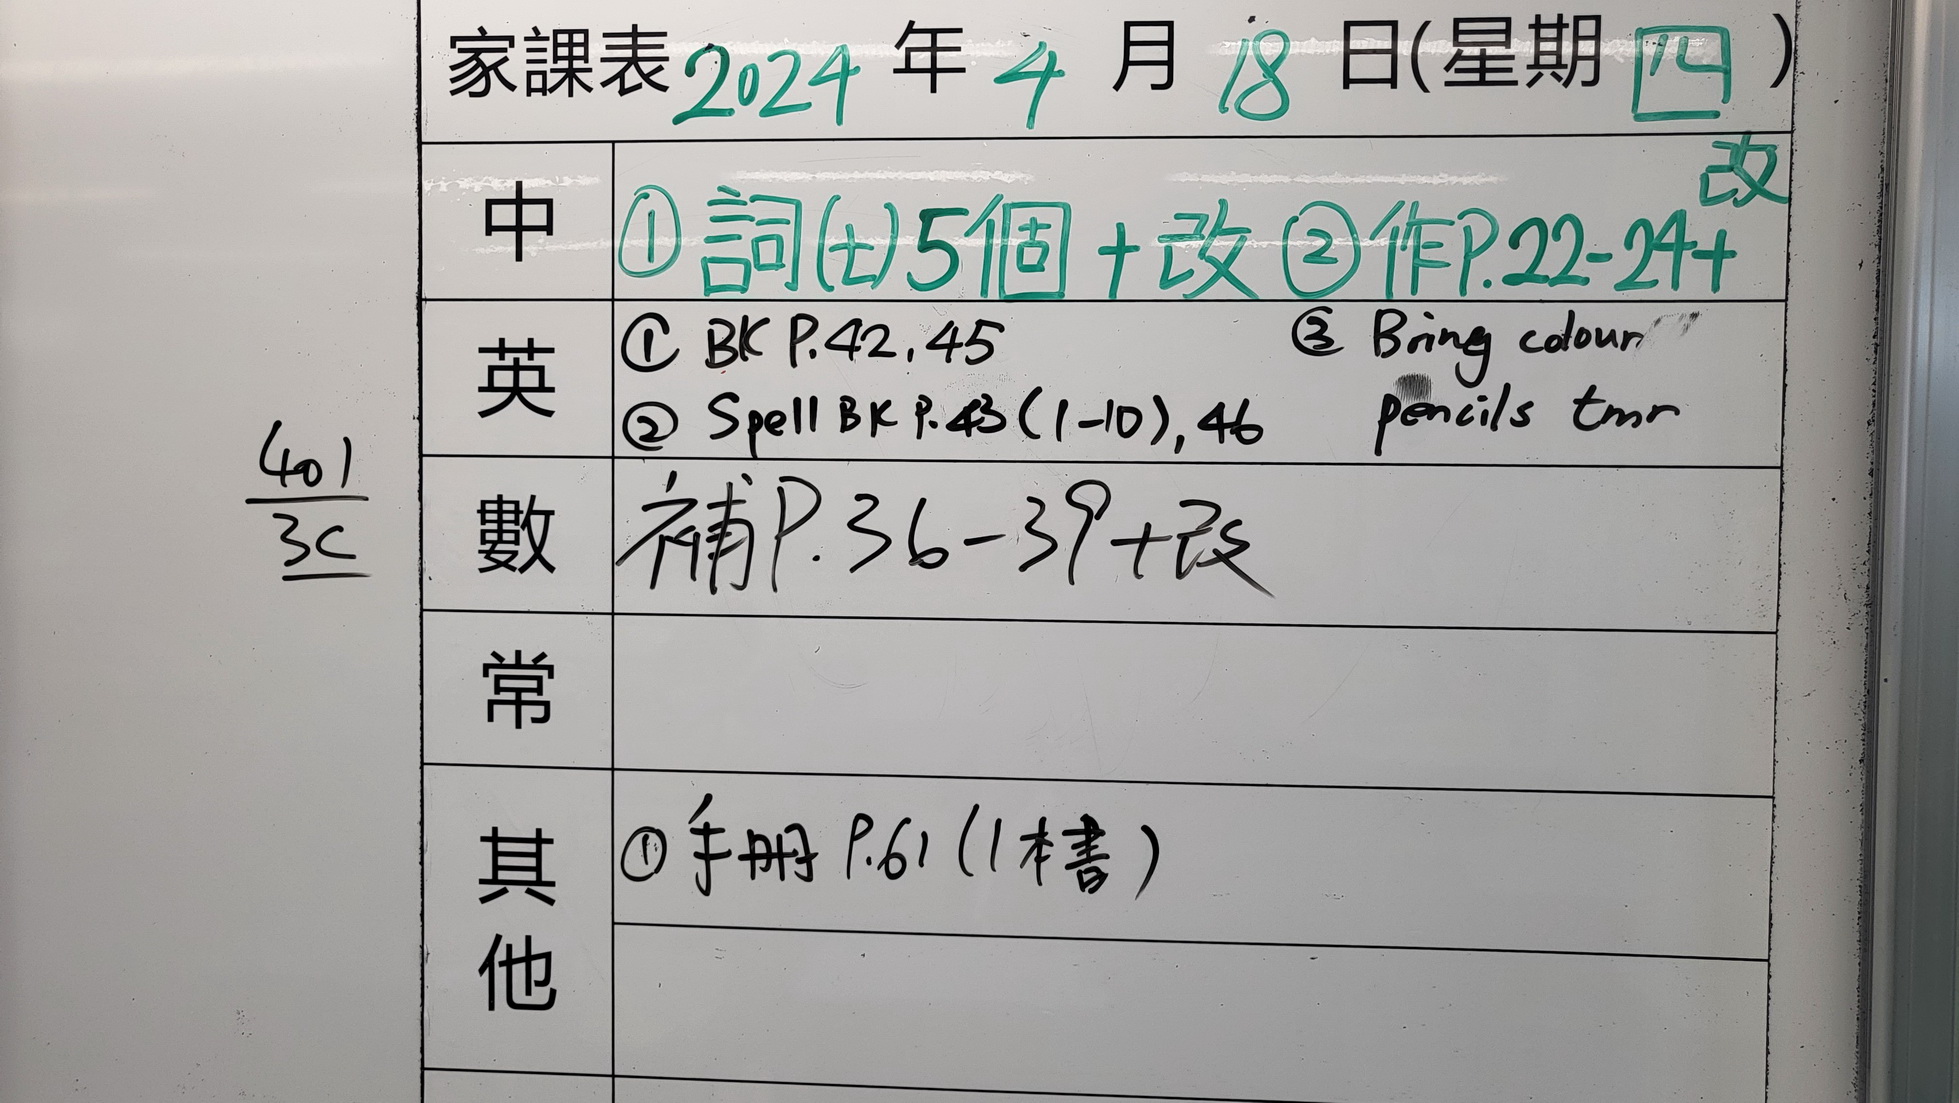 家課表 2024 年 4 月 18 日(星期 四 )
中 ① 詞(七)5個 + 改 ② 作P.22-24+改
英 ① BK P.42, 45
② Spell BK P.43 (1-10), 46
③ Bring colour
pencils tmr
401
3C
數 補P.36-39+改
常
其他 ① 手册 P.61 (1本書)